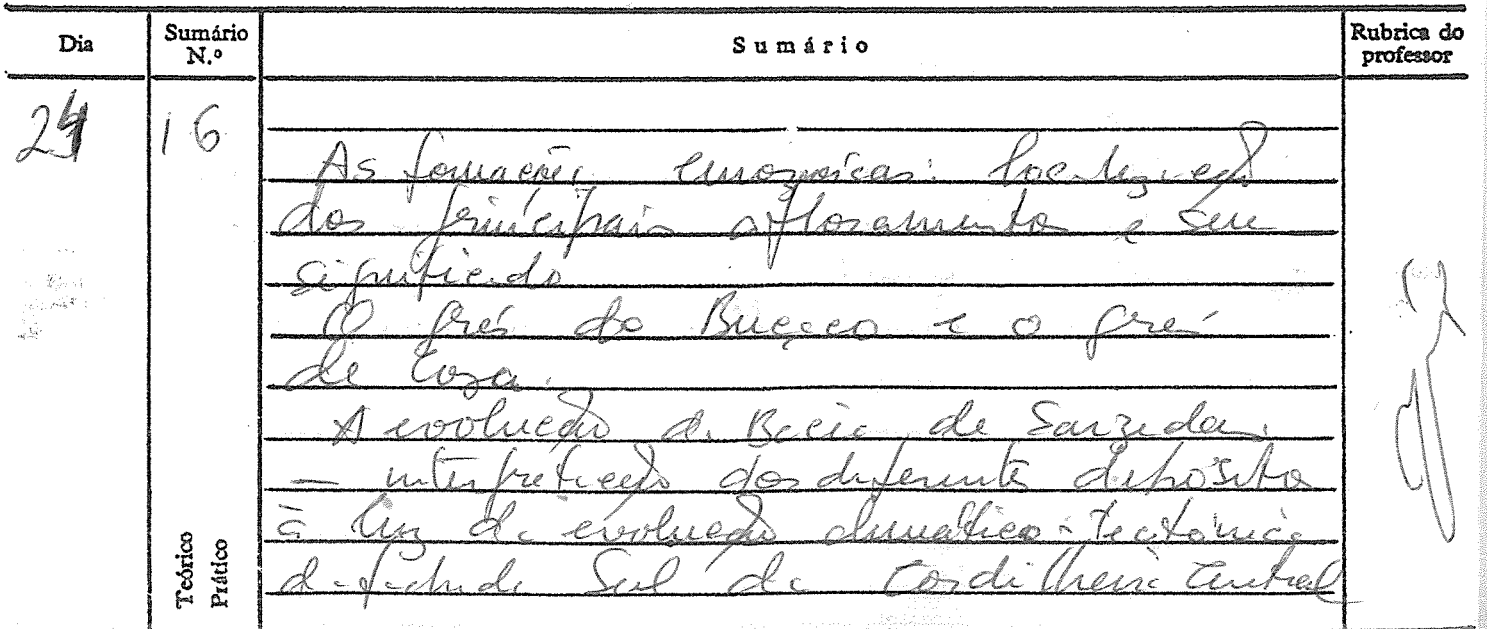 Dia
Sumário N.º
Sumário
Rubrica do professor
24
16
As formações cenozóicas: localização
dos principais afloramentos e seu
significado
O grés do Buçaco e o grés
de Coja.
A evolução da Bacia de Sarzedas
— interpretação dos diferentes depósitos
à luz da evolução climático-tectónica
da fachada Sul da Cordilheira Central
Teórico
Prático